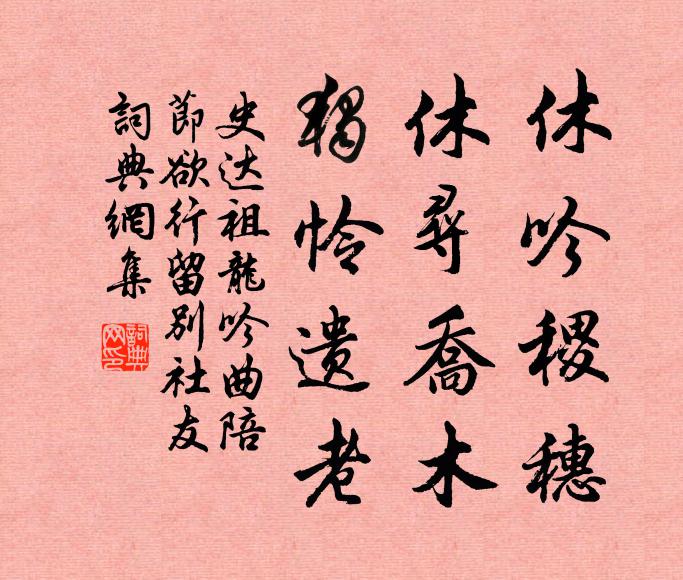 休吟稷穗
休尋喬木
獨怜遺老
史达祖龍吟曲陪
節欲行留别社友
詞典網集
詞典网印